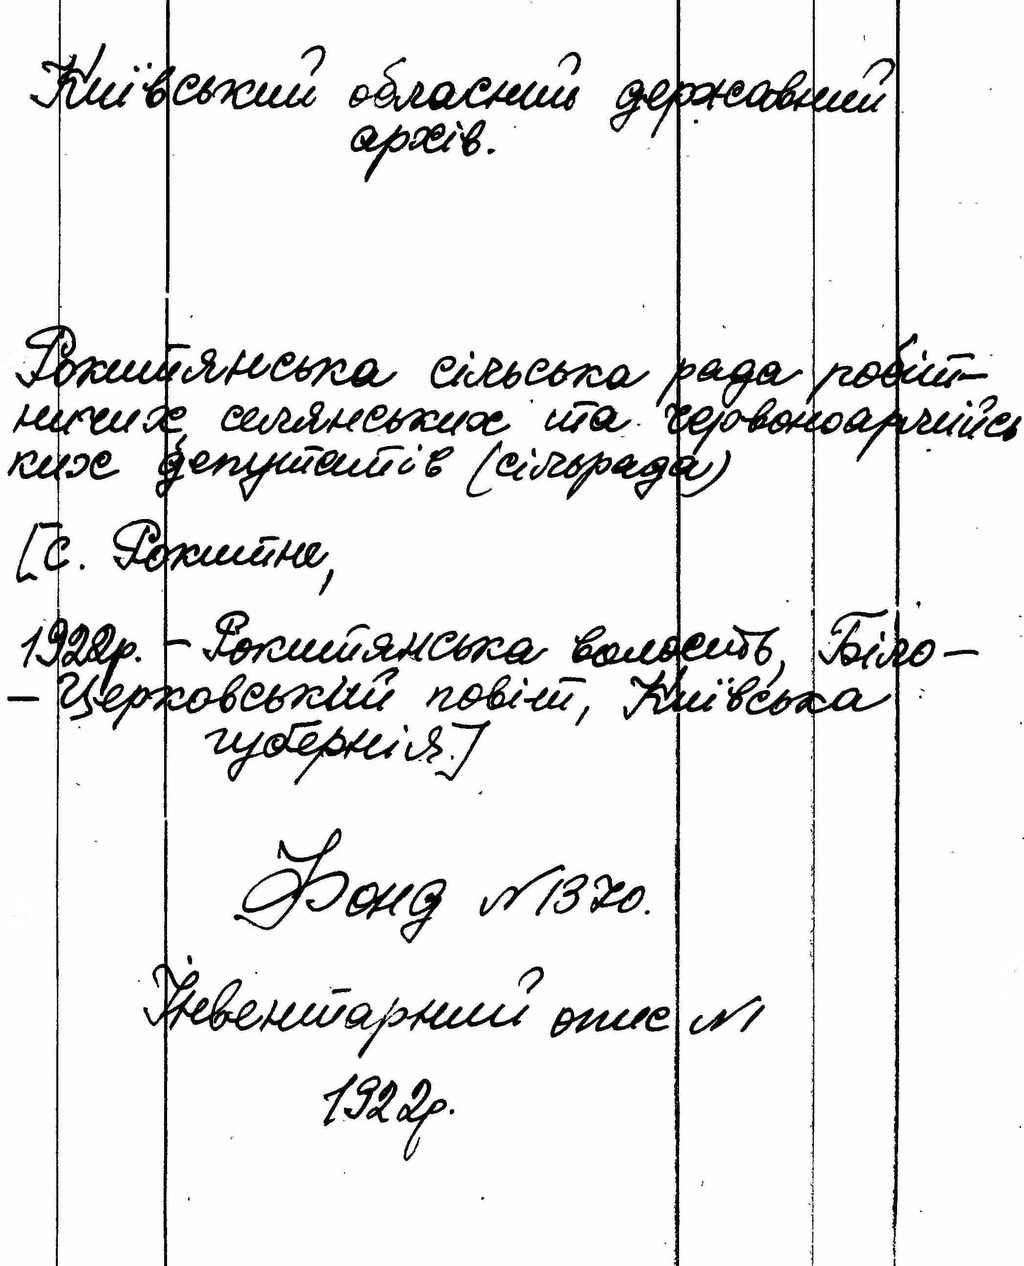 Київський обласний державний
архів.
Рокитянська сільська рада робіт-
ничих, селянських та червоноармійсь
ких депутатів (сільрада)
[с. Рокитне,
1922р. - Рокитянська волость, Біло-
- Церковський повіт, Київська
губернія.]
Фонд №1370.
Інвентарний опис №1
1922р.